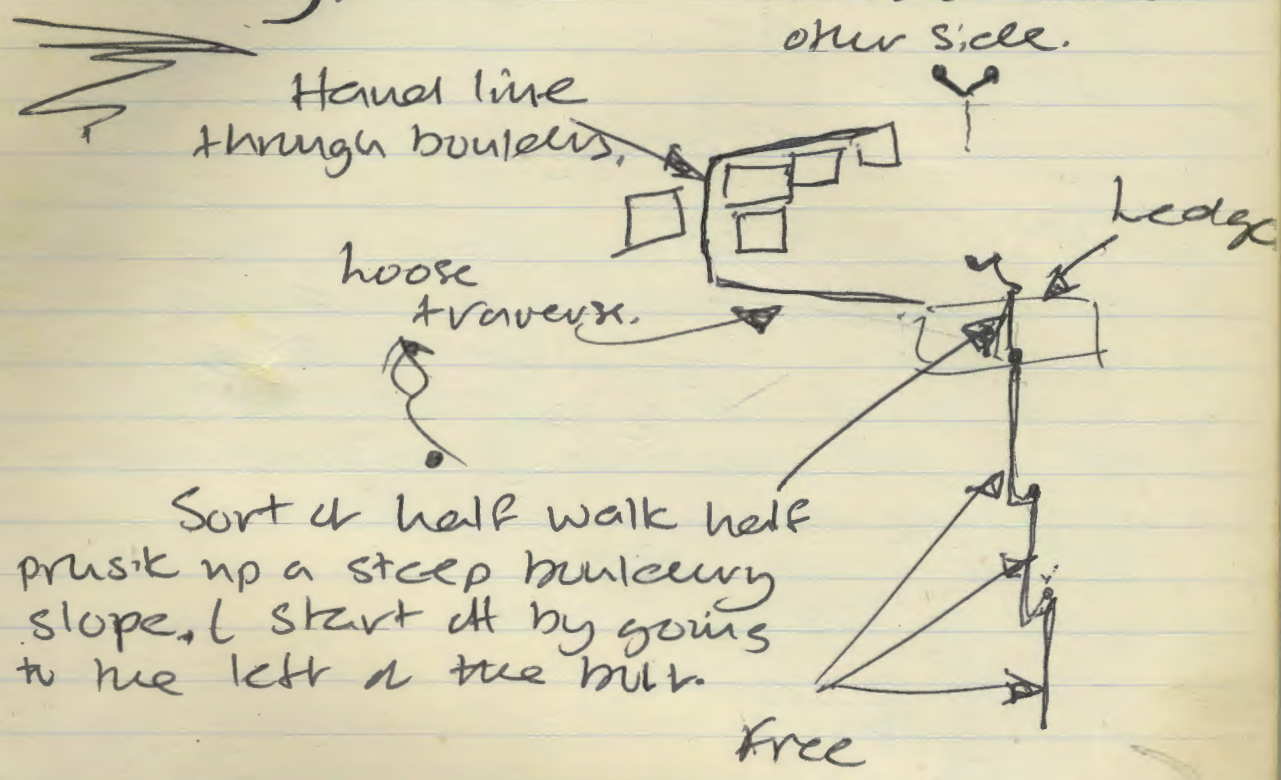 other side.
Hand line
through boulders.
Ledge
Loose
traverse.
Sort of half walk half
prusik up a steep bouldery
slope. I start off by going
to the left of the bolt.
Free